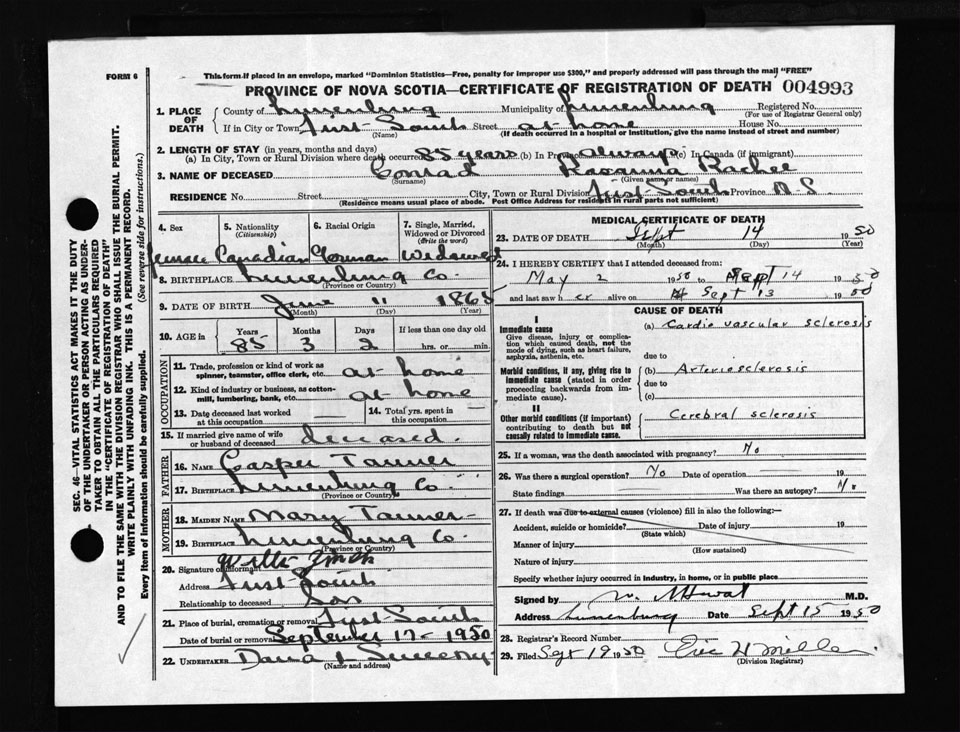 This form if placed in an envelope, marked "Dominion Statistics—Free, penalty for improper use $300," and properly addressed will pass through the mail "FREE"
FORM 6
PROVINCE OF NOVA SCOTIA—CERTIFICATE OF REGISTRATION OF DEATH 004993
1. PLACE OF DEATH County of Lunenburg Municipality of Lunenburg Registered No.
(For use of Registrar General only)
If in City or Town First South Street at home House No.
(Name) (If death occurred in a hospital or institution, give the name instead of street and number)
2. LENGTH OF STAY (in years, months and days)
(a) In City, Town or Rural Division where death occurred 85 years (b) In Province always (c) In Canada (if immigrant)
3. NAME OF DECEASED Conrad Rosanna Rachel
(Surname) (Given name or names)
RESIDENCE No. Street City, Town or Rural Division First South Province N.S.
(Residence means usual place of abode. Post Office Address for residents in rural parts not sufficient)
4. Sex 5. Nationality (Citizenship) 6. Racial Origin 7. Single, Married, Widowed or Divorced (Write the word)
Female Canadian German Widowed
8. BIRTHPLACE Lunenburg Co.
(Province or Country)
9. DATE OF BIRTH June 11 1865
(Month) (Day) (Year)
10. AGE in Years Months Days If less than one day old
85 3 2 hrs. or min.
OCCUPATION
11. Trade, profession or kind of work as spinner, teamster, office clerk, etc. at home
12. Kind of industry or business, as cotton-mill, lumbering, bank, etc. at home
13. Date deceased last worked at this occupation 14. Total yrs. spent in this occupation
15. If married give name of wife or husband of deceased deceased.
FATHER
16. NAME Casper Tanner
17. BIRTHPLACE Lunenburg Co.
(Province or Country)
MOTHER
18. MAIDEN NAME Mary Tanner
19. BIRTHPLACE Lunenburg Co.
(Province or Country)
20. Signature of informant
Address First South
Relationship to deceased Son
21. Place of burial, cremation or removal First South
Date of burial or removal September 17 - 1950
22. UNDERTAKER Sweeny
(Name and address)
MEDICAL CERTIFICATE OF DEATH
23. DATE OF DEATH Sept 14 1950
(Month) (Day) (Year)
24. I HEREBY CERTIFY that I attended deceased from:
May 2 1950 to Sept 14 1950
and last saw her alive on Sept 13 1950
CAUSE OF DEATH
I
Immediate cause
Give disease, injury or complication which caused death, not the mode of dying, such as heart failure, asphyxia, asthenia, etc.
(a) Cardio vascular sclerosis
due to
Morbid conditions, if any, giving rise to immediate cause (stated in order proceeding backwards from immediate cause).
(b) Arteriosclerosis
due to
(c)
II
Other morbid conditions (if important) contributing to death but not causally related to immediate cause.
Cerebral sclerosis
25. If a woman, was the death associated with pregnancy? No
26. Was there a surgical operation? No Date of operation 19
State findings Was there an autopsy? No
27. If death was due to external causes (violence) fill in also the following:—
Accident, suicide or homicide? Date of injury 19
(State which)
Manner of injury
(How sustained)
Nature of injury
Specify whether injury occurred in industry, in home, or in public place
Signed by M.D.
Address Lunenburg Date Sept 15 1950
28. Registrar's Record Number
29. Filed Sept 19 1950 Eric W Miller
(Division Registrar)
SEC. 46—VITAL STATISTICS ACT MAKES IT THE DUTY
OF THE UNDERTAKER OR PERSON ACTING AS UNDER-
TAKER TO OBTAIN ALL THE PARTICULARS REQUIRED
IN THE "CERTIFICATE OF REGISTRATION OF DEATH"
AND TO FILE THE SAME WITH THE DIVISION REGISTRAR WHO SHALL ISSUE THE BURIAL PERMIT.
WRITE PLAINLY WITH UNFADING INK. THIS IS A PERMANENT RECORD.
Every item of information should be carefully supplied. (See reverse side for instructions.)